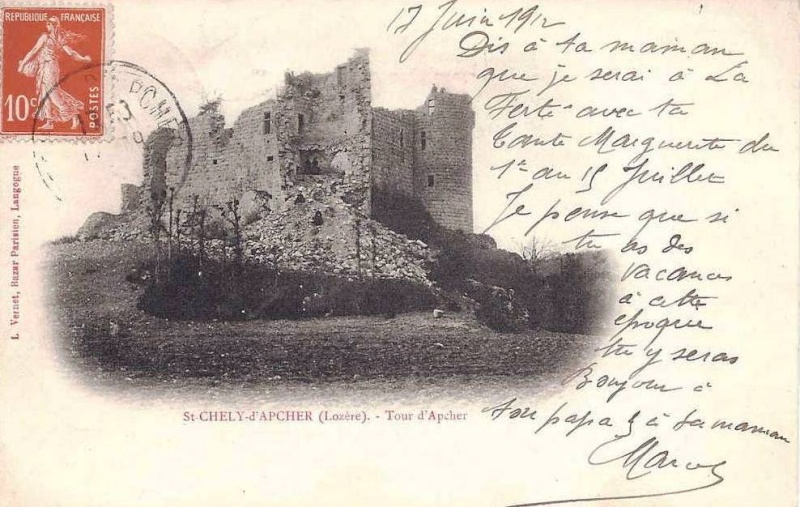 RÉPUBLIQUE FRANÇAISE
10c POSTES
17 Juin 1912
Dis à ta maman
que je serai à La
Ferté avec ta
tante Marguerite du
1er au 15 Juillet
Je pense que si
tu as des
vacances
à cette
époque
tu y seras
Bonjour à
ton papa & à ta maman
Marcel
L. Vernet, Bazar Parisien, Langogne
St-CHELY-d'APCHER (Lozère). - Tour d'Apcher